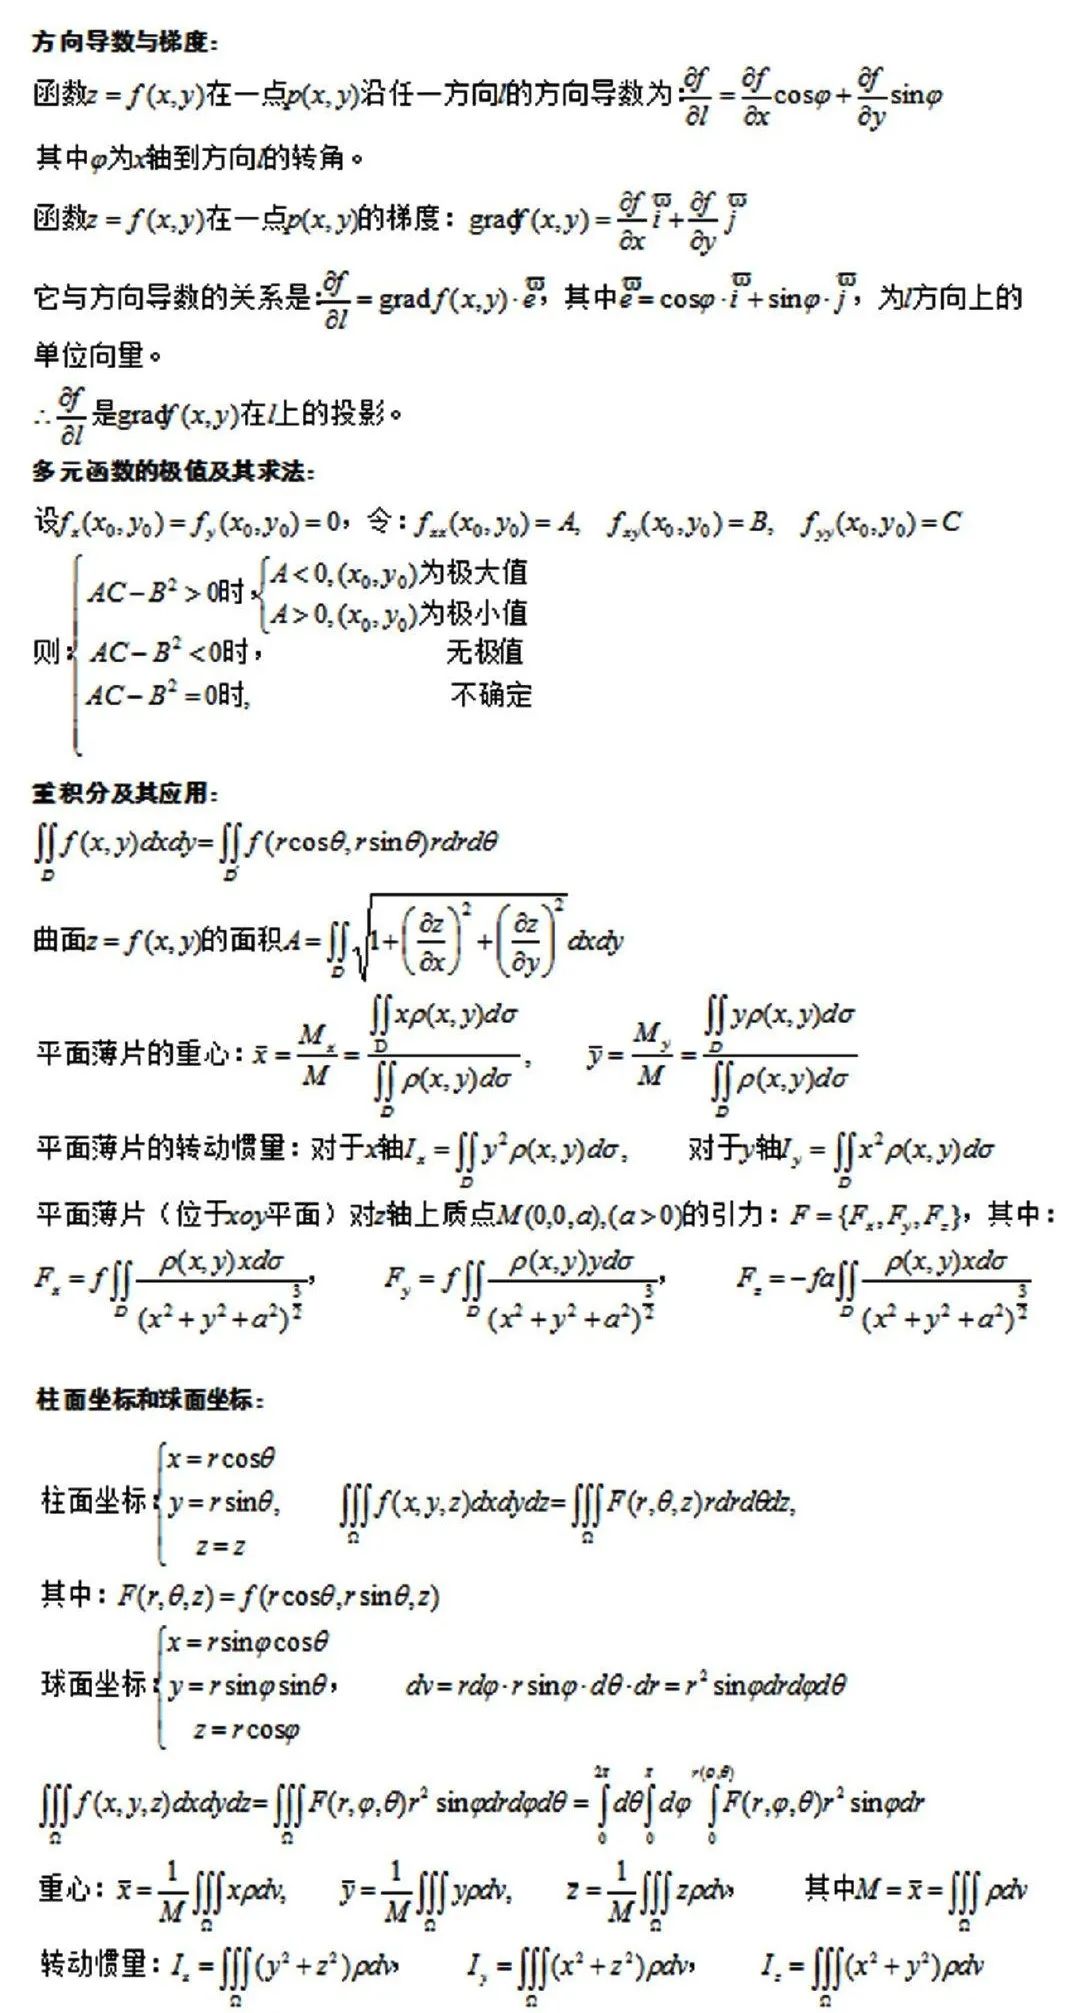 方向导数与梯度：
函数z = f(x,y)在一点p(x,y)沿任一方向l的方向导数为：∂f/∂l = ∂f/∂x cosφ + ∂f/∂y sinφ
其中φ为x轴到方向l的转角。
函数z = f(x,y)在一点p(x,y)的梯度：gradf(x,y) = ∂f/∂x i + ∂f/∂y j
它与方向导数的关系是：∂f/∂l = grad f(x,y)·e，其中e = cosφ·i + sinφ·j，为l方向上的
单位向量。
∴∂f/∂l是gradf(x,y)在l上的投影。
多元函数的极值及其求法：
设f_x(x₀,y₀) = f_y(x₀,y₀) = 0，令：f_xx(x₀,y₀) = A, f_xy(x₀,y₀) = B, f_yy(x₀,y₀) = C
则：{AC − B² > 0时，{A < 0,(x₀,y₀)为极大值
A > 0,(x₀,y₀)为极小值
AC − B² < 0时， 无极值
AC − B² = 0时, 不确定
重积分及其应用：
∬_D f(x,y)dxdy = ∬_D′ f(r cosθ, r sinθ)rdrdθ
曲面z = f(x,y)的面积A = ∬_D √(1 + (∂z/∂x)² + (∂z/∂y)²) dxdy
平面薄片的重心：x̄ = M_x/M = ∬_D xρ(x,y)dσ / ∬_D ρ(x,y)dσ, ȳ = M_y/M = ∬_D yρ(x,y)dσ / ∬_D ρ(x,y)dσ
平面薄片的转动惯量：对于x轴I_x = ∬_D y²ρ(x,y)dσ, 对于y轴I_y = ∬_D x²ρ(x,y)dσ
平面薄片（位于xoy平面）对z轴上质点M(0,0,a),(a > 0)的引力：F = {F_x,F_y,F_z}，其中：
F_x = f∬_D ρ(x,y)xdσ/(x² + y² + a²)^(3/2)， F_y = f∬_D ρ(x,y)ydσ/(x² + y² + a²)^(3/2)， F_z = −fa∬_D ρ(x,y)xdσ/(x² + y² + a²)^(3/2)
柱面坐标和球面坐标：
柱面坐标：{x = r cosθ
y = r sinθ, ∭_Ω f(x,y,z)dxdydz = ∭_Ω F(r,θ,z)rdrdθdz,
z = z
其中：F(r,θ,z) = f(r cosθ, r sinθ, z)
球面坐标：{x = r sinφ cosθ
y = r sinφ sinθ， dv = rdφ·r sinφ·dθ·dr = r² sinφdrdφdθ
z = r cosφ
∭_Ω f(x,y,z)dxdydz = ∭_Ω F(r,φ,θ)r² sinφdrdφdθ = ∫₀^2π dθ ∫₀^π dφ ∫₀^r(φ,θ) F(r,φ,θ)r² sinφdr
重心：x̄ = 1/M ∭_Ω xρdv, ȳ = 1/M ∭_Ω yρdv, z̄ = 1/M ∭_Ω zρdv， 其中M = x̄ = ∭_Ω ρdv
转动惯量：I_x = ∭_Ω (y² + z²)ρdv， I_y = ∭_Ω (x² + z²)ρdv， I_z = ∭_Ω (x² + y²)ρdv